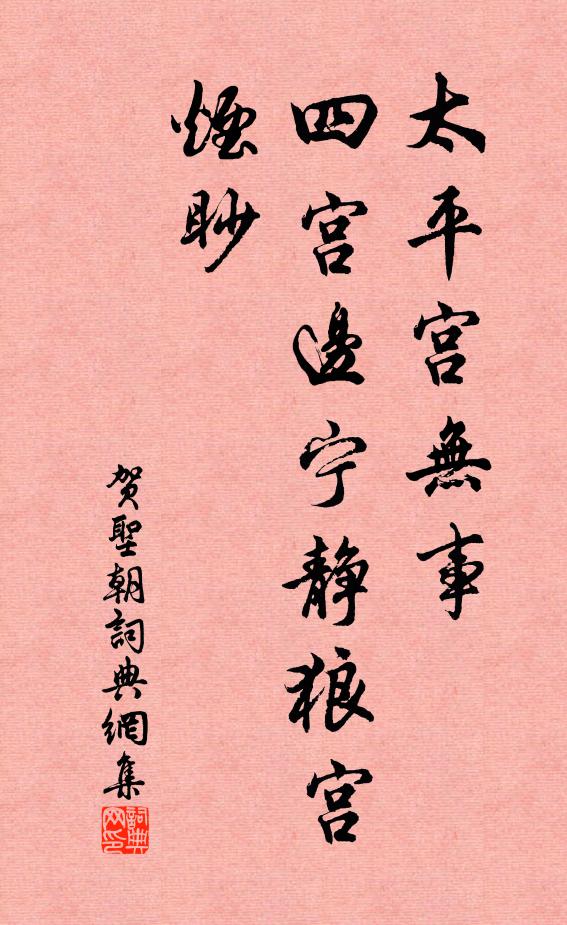 太平宫無事
四宫邊宁靜狼宫
煙眇
贺聖朝詞典網集
詞典网印